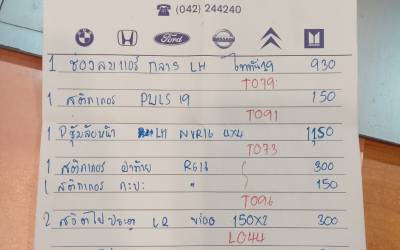 ☎ (042) 244240
Ford
1 ช่องลมแอร์ กลาง LH ไททัน19 930
T079
1 สติกเกอร์ PULS 19 150
T091
1 ซุ้มล้อหน้า LH NVR16 4x4 1150
T073
1 สติกเกอร์ ฝาท้าย RG16 300
1 สติกเกอร์ กะบะ " 150
T096
2 สวิตไฟประตู LR 150X2 300
L044